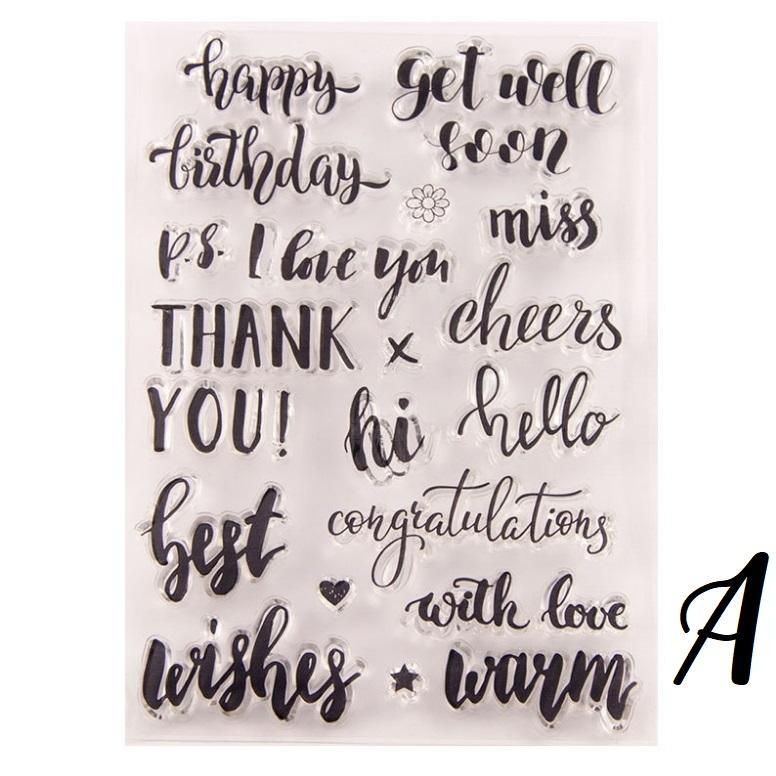 happy
birthday
get well
soon
miss
p.s. I love you
THANK
YOU!
x
cheers
hi
hello
best
wishes
congratulations
with love
warm
A